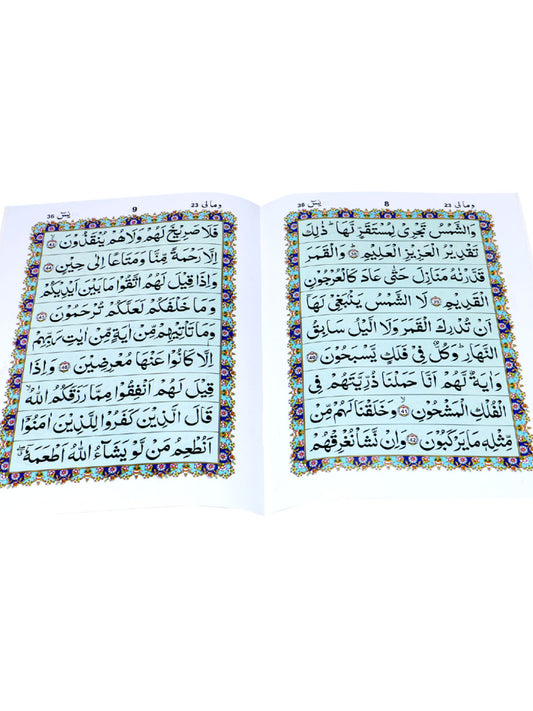 یٰسٓ 36 8 ومالی 23
وَالشَّمْسُ تَجْرِیْ لِمُسْتَقَرٍّ لَّهَا ؕ ذٰلِكَ
تَقْدِیْرُ الْعَزِیْزِ الْعَلِیْمِ ﴿۳۸﴾ وَالْقَمَرَ
قَدَّرْنٰهُ مَنَازِلَ حَتّٰی عَادَ كَالْعُرْجُوْنِ
الْقَدِیْمِ ﴿۳۹﴾ لَا الشَّمْسُ یَنْۢبَغِیْ لَهَاۤ
اَنْ تُدْرِكَ الْقَمَرَ وَلَا الَّیْلُ سَابِقُ
النَّهَارِ ؕ وَكُلٌّ فِیْ فَلَكٍ یَّسْبَحُوْنَ ﴿۴۰﴾
وَاٰیَةٌ لَّهُمْ اَنَّا حَمَلْنَا ذُرِّیَّتَهُمْ فِی
الْفُلْكِ الْمَشْحُوْنِ ﴿۴۱﴾ وَخَلَقْنَا لَهُمْ مِّنْ
مِّثْلِهٖ مَا یَرْكَبُوْنَ ﴿۴۲﴾ وَاِنْ نَّشَاْ نُغْرِقْهُمْ
یٰسٓ 36 9 ومالی 23
فَلَا صَرِیْخَ لَهُمْ وَلَا هُمْ یُنْقَذُوْنَ ﴿۴۳﴾
اِلَّا رَحْمَةً مِّنَّا وَمَتَاعًا اِلٰی حِیْنٍ ﴿۴۴﴾
وَاِذَا قِیْلَ لَهُمُ اتَّقُوْا مَا بَیْنَ اَیْدِیْكُمْ
وَمَا خَلْفَكُمْ لَعَلَّكُمْ تُرْحَمُوْنَ ﴿۴۵﴾
وَمَا تَاْتِیْهِمْ مِّنْ اٰیَةٍ مِّنْ اٰیٰتِ رَبِّهِمْ
اِلَّا كَانُوْا عَنْهَا مُعْرِضِیْنَ ﴿۴۶﴾ وَاِذَا
قِیْلَ لَهُمْ اَنْفِقُوْا مِمَّا رَزَقَكُمُ اللّٰهُ ۙ
قَالَ الَّذِیْنَ كَفَرُوْا لِلَّذِیْنَ اٰمَنُوْۤا
اَنُطْعِمُ مَنْ لَّوْ یَشَآءُ اللّٰهُ اَطْعَمَهٗۤ ۖ